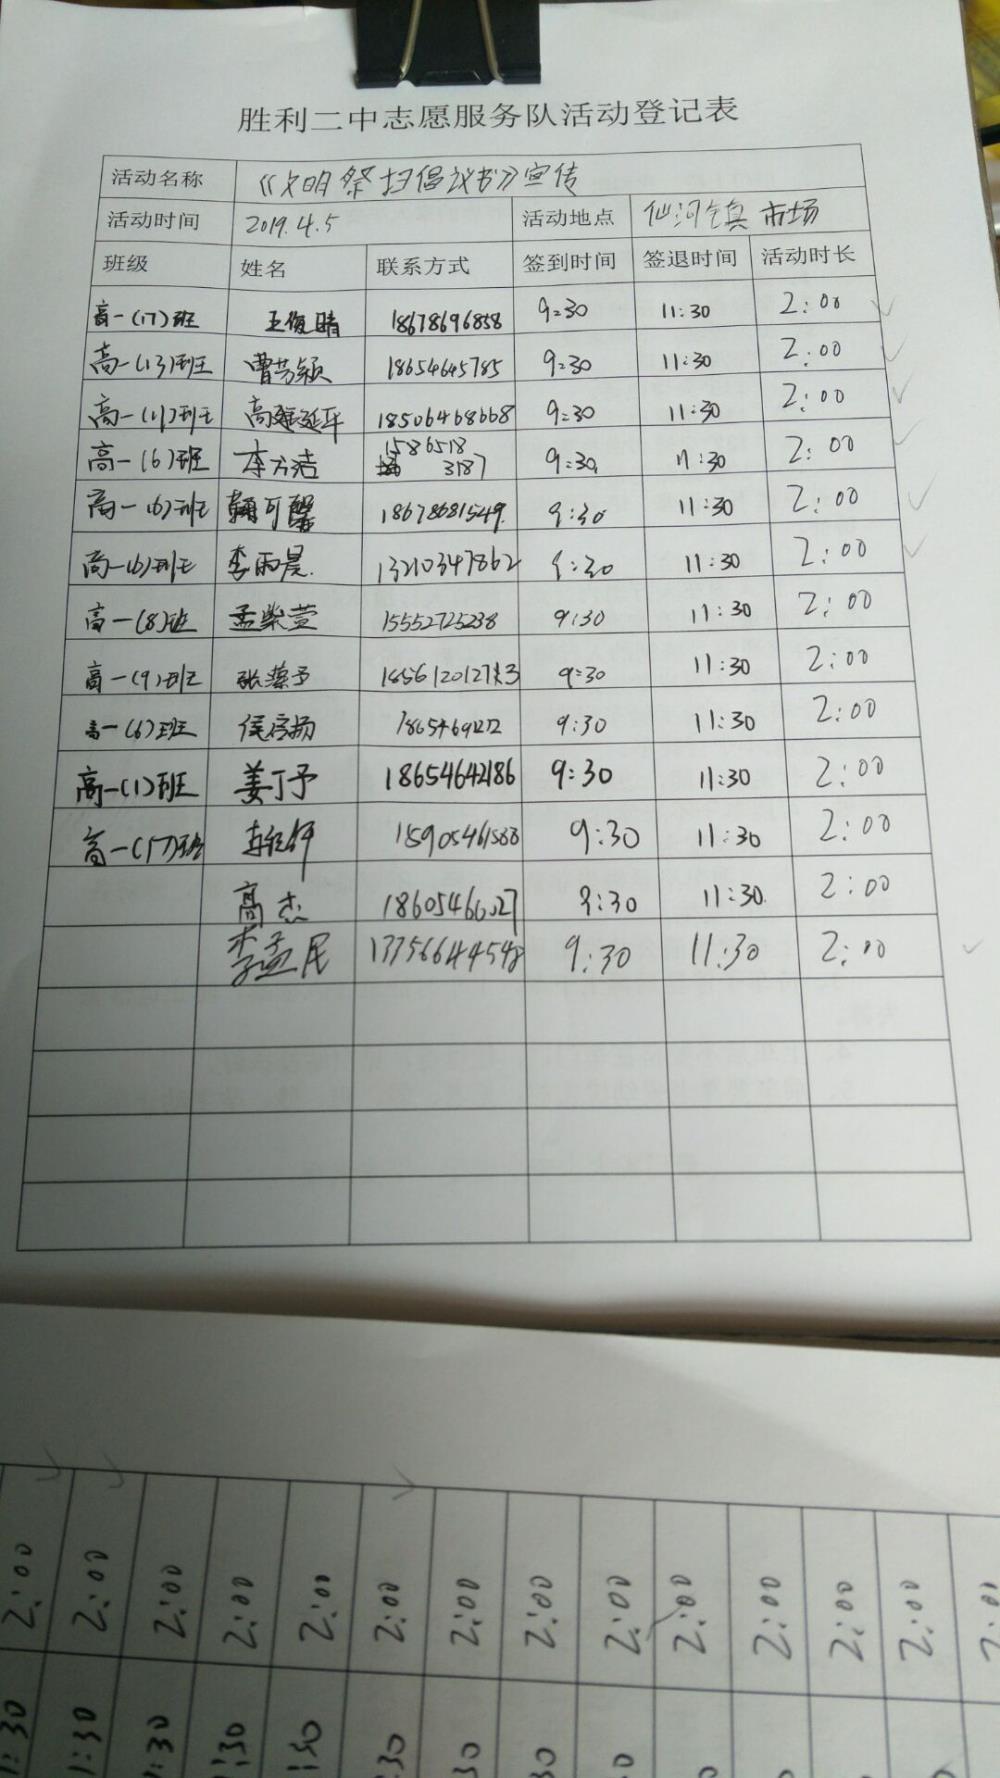 胜利二中志愿服务队活动登记表
活动名称 《文明祭扫倡议书》宣传
活动时间 2019.4.5 活动地点 仙河镇 市场
班级 姓名 联系方式 签到时间 签退时间 活动时长
高一(17)班 王俊晴 18678696858 9:30 11:30 2:00
高一(13)班 曹芳颖 18654645785 9:30 11:30 2:00
高一(11)班 高 延年 18506468668 9:30 11:30 2:00
高一(6)班 李方洁 15865183187 9:30 11:30 2:00
高一(6)班 可馨 18678681549 9:30 11:30 2:00
高一(6)班 李雨晨 13210347862 9:30 11:30 2:00
高一(8)班 孟紫萱 15552725238 9:30 11:30 2:00
高一(9)班 张 予 9:30 11:30 2:00
高一(6)班 侯 9:30 11:30 2:00
高一(1)班 姜丁予 18654642186 9:30 11:30 2:00
高一(17)班 15905461588 9:30 11:30 2:00
高杰 9:30 11:30 2:00
李孟民 13756644548 9:30 11:30 2:00
2:00 2:00 2:00 2:00 2:00 2:00 2:00 2:00 2:00 2:00 2:00 2:00 2:00
1:30 1:30 1:30 1:30 :30 30 30 30